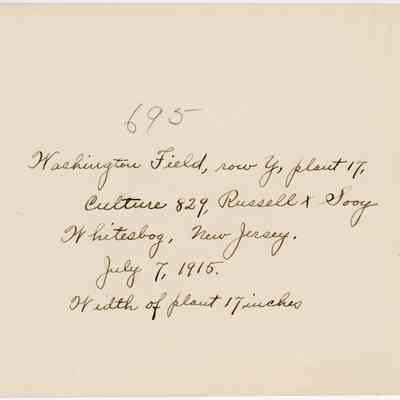 695
Washington Field, row Y, plant 17,
Culture 829, Russell X Sooy
Whitesbog, New Jersey.
July 7, 1915.
Width of plant 17 inches